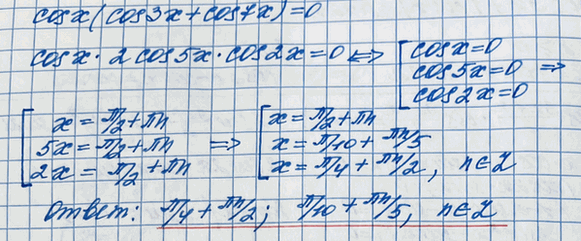 cosx(cos3x+cos7x)=0
cosx·2cos5x·cos2x=0 <=> [cosx=0
cos5x=0 =>
cos2x=0
[x=π/2+πn
5x=π/2+πn =>
2x=π/2+πn
[x=π/2+πn
x=π/10+πn/5
x=π/4+πn/2, n∈Z
Ответ: π/4+πn/2; π/10+πn/5, n∈Z